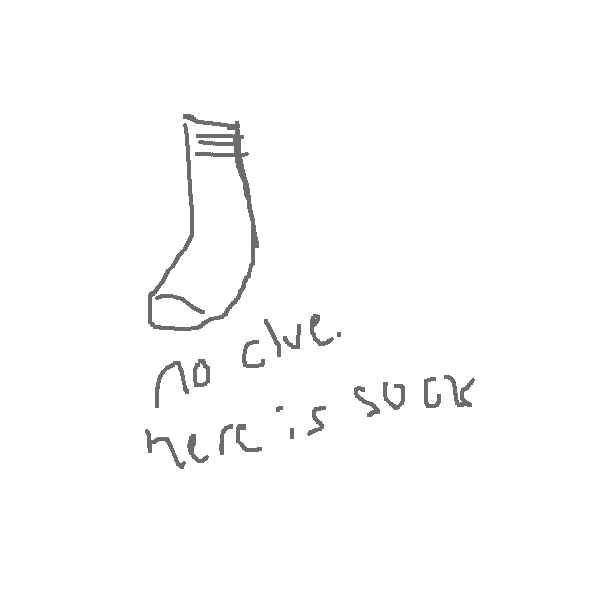 no clue.
here is sock